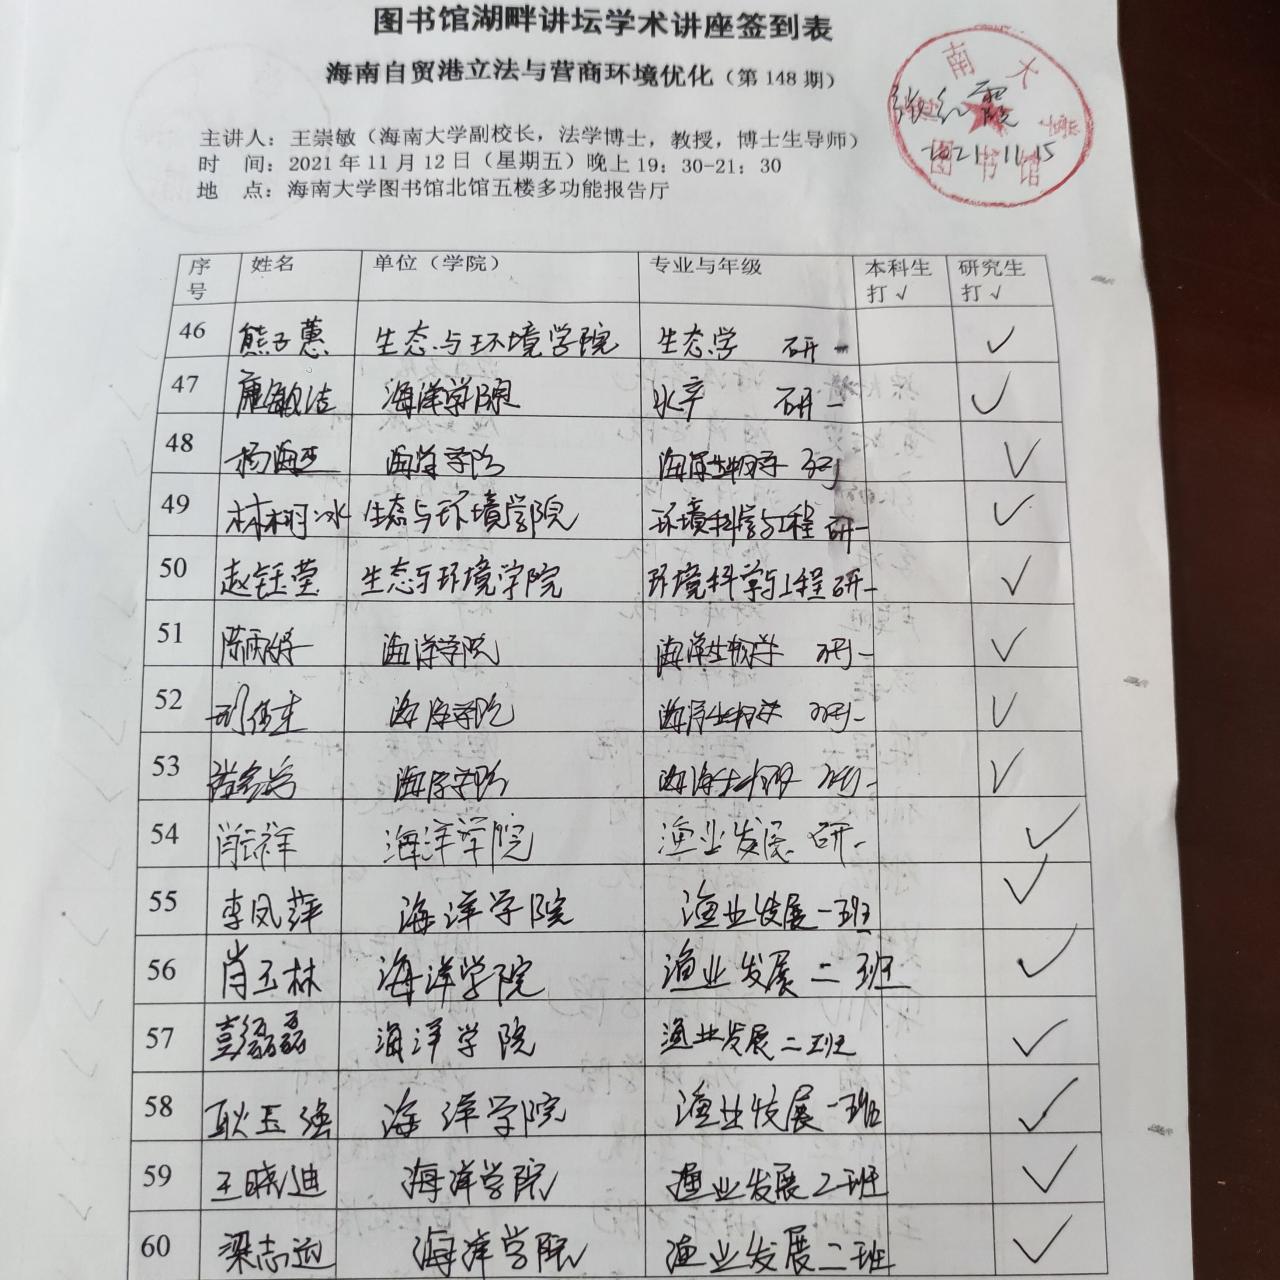 图书馆湖畔讲坛学术讲座签到表
海南自贸港立法与营商环境优化（第 148 期）
主讲人：王崇敏（海南大学副校长，法学博士，教授，博士生导师）
时 间：2021 年 11 月 12 日（星期五）晚上 19：30-21：30
地 点：海南大学图书馆北馆五楼多功能报告厅
南大
图书馆
2021.11.15
序号 姓名 单位（学院） 专业与年级 本科生打√ 研究生打√
46 熊子蕙 生态与环境学院 生态学 研一 √
47 敏洁 海洋学院 水产 研一 √
48 杨海 海洋学院 海洋生物学 研 √
49 林栩冰 生态与环境学院 环境科学与工程 研一 √
50 赵钰莹 生态与环境学院 环境科学与工程 研一 √
51 陈雨婷 海洋学院 海洋生物学 研一 √
52 海洋学院 海洋生物学 研一 √
53 海洋学院 海洋生物学 研一 √
54 肖云祥 海洋学院 渔业发展 研一 √
55 李凤萍 海洋学院 渔业发展一班 √
56 肖玉林 海洋学院 渔业发展二班 √
57 彭磊磊 海洋学院 渔业发展二班 √
58 耿玉强 海洋学院 渔业发展一班 √
59 王晓迪 海洋学院 渔业发展2班 √
60 梁志远 海洋学院 渔业发展二班 √